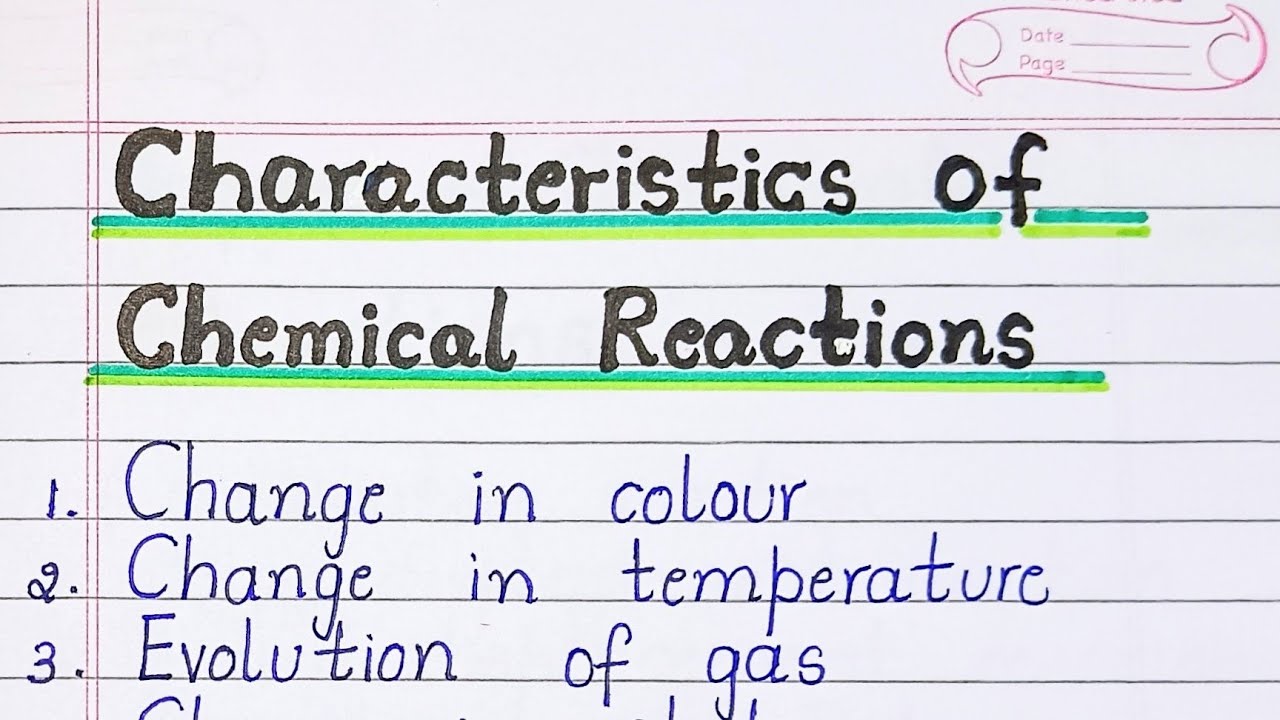 Date
Page
Characteristics of
Chemical Reactions
1. Change in colour
2. Change in temperature
3. Evolution of gas